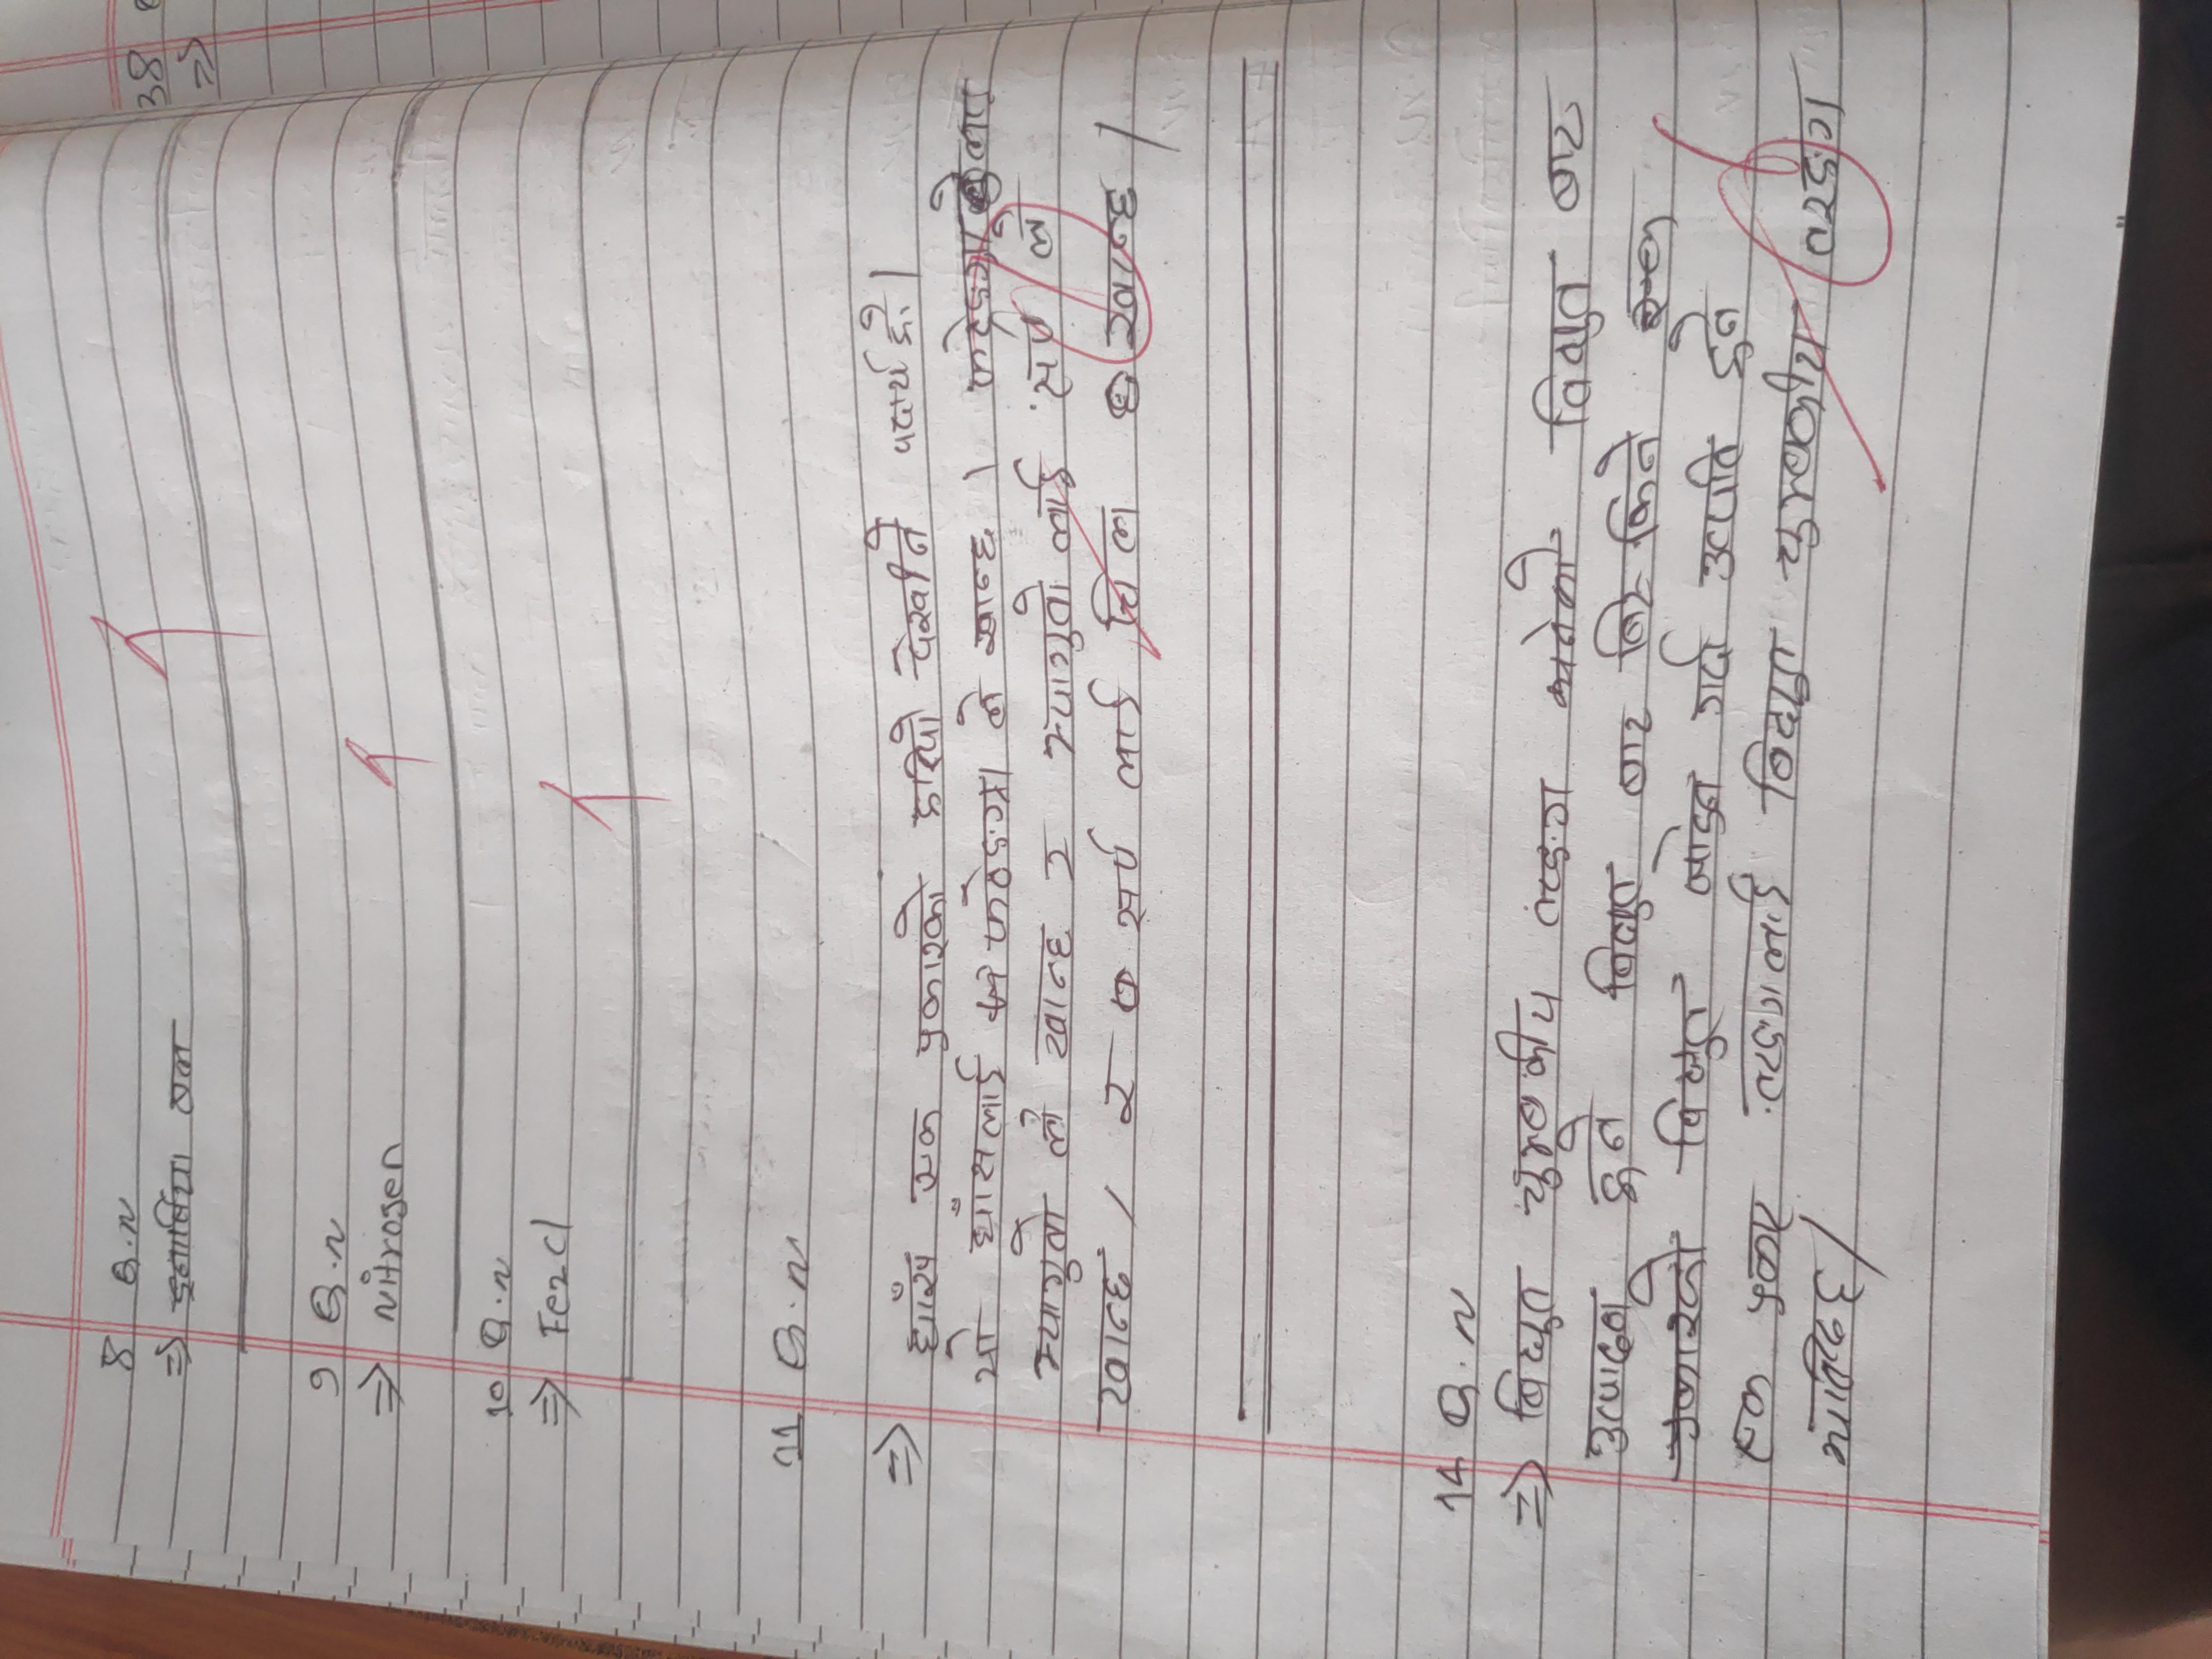 8 Q.n
⇒ इनार्सिया बल
9 Q.n
⇒ Nitrogen
10 Q.n
⇒ Fe2Cl
11 Q.n
⇒ घाँस एक प्रकारको हरियो देखीने पदार्थ हो।
यो घाँसलाई फटेङग्रा ले खान्छ । फट्रेङग्रा लाए
भ्यागुतो ले खान्छ र भ्यागुतो लाई सर्प ले
खान्छ । र सर्प लाई चिल खान्छ ।
14 Q.n
⇒ बिद्युत चुम्बकीय तरङग भनेको विद्युत बाट
उत्पादन हुने बिद्युत बाट निस्किने एक
प्रकारको बिद्युत जोडन गर्दा उत्पति हुने
एक प्रकार तरङगलाई बिद्युत चुम्बकीय तरङग
भानिन्छ ।
38
⇒